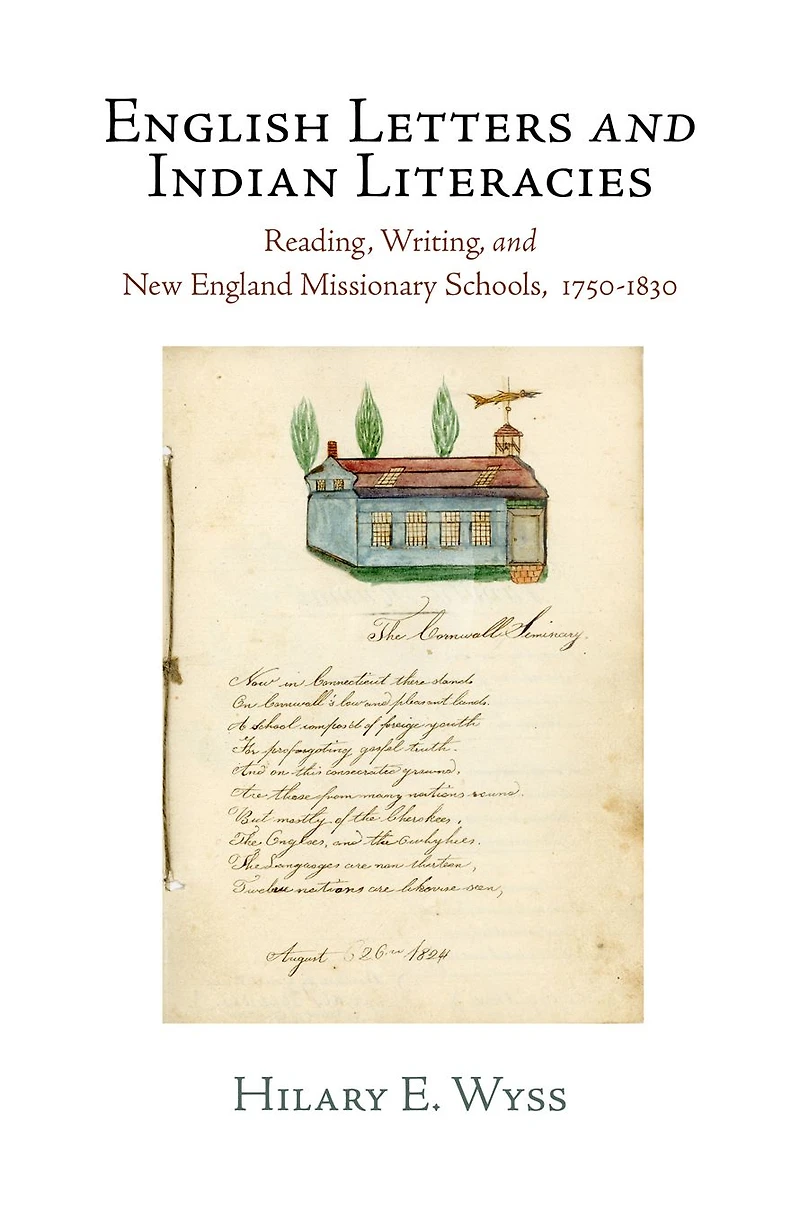 ENGLISH LETTERS AND
INDIAN LITERACIES
Reading, Writing, and
New England Missionary Schools, 1750-1830
The Cornwall Seminary.
Now in Connecticut there stands
On Cornwall's low and pleasant lands.
A school compos'd of foreign youth
For propagating gospel truth.
And on this consecrated ground,
Are those from many nations round.
But mostly of the Cherokees,
The Angloes, and the Owhyhees.
The Languages are non thirteen,
Twelve nations are likewise seen,
August 26th 1824
HILARY E. WYSS